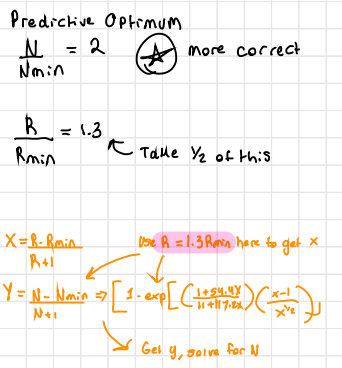 Predictive Optimum
N/Nmin = 2 ☆ more correct
R/Rmin = 1.3
← Take 1/2 of this
X = R-Rmin/R+1 Use R = 1.3Rmin here to get x
Y = N-Nmin/N+1 ⇒ [1-exp[(1+54.4X/11+117.2X)(x-1/x^1/2)]]
→ Get y, solve for N